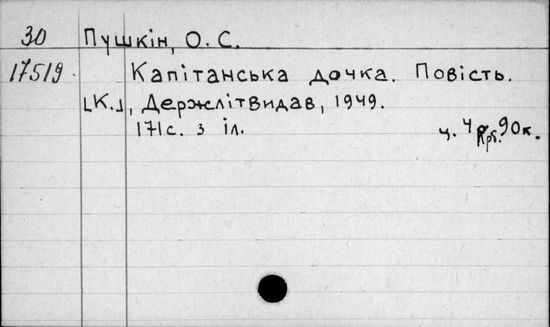 30 Пушкін, О. С.
17519. Капітанська дочка. Повість.
[К.], Держлітвидав, 1949.
171с. з іл. ц. 4 крб. 90к.